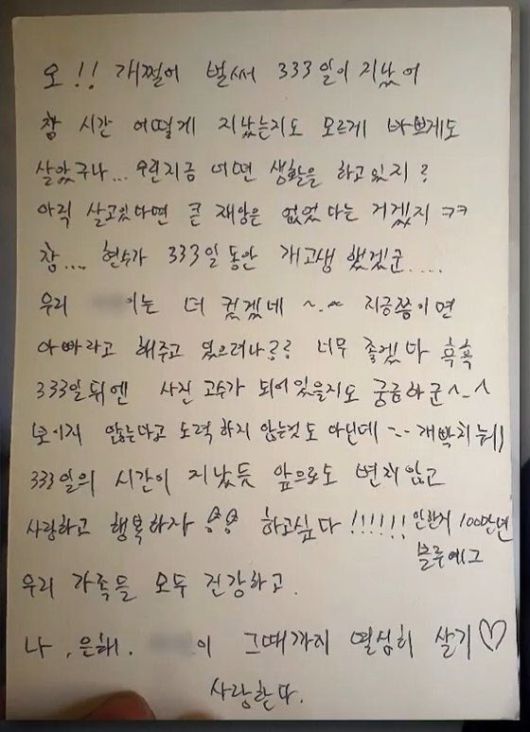 오!! 개쩔어 벌써 333일이 지났어
참 시간 어떻게 지났는지도 모르게 바쁘게도
살았구나... 우린지금 어떤 생활을 하고있지?
아직 살고있다면 큰 재앙은 없었다는 거겠지 ㅋㅋ
참.... 현수가 333일 동안 개고생 했겠군....
우리 이는 더 컸겠네 ~.~ 지금쯤이면
아빠라고 해주고 있으려나?? 너무 좋겠다 흑흑
333일뒤엔 사진 고수가 되어있을지도 궁금하군^-^
보이지 않는다고 노력하지 않는것도 아닌데 --
333일의 시간이 지났듯 앞으로도 변치않고
사랑하고 행복하자 하고싶다!!!!!! 안한지 100만년
블루에그
우리 가족들 모두 건강하고.
나, 은혜. 이 그때까지 열심히 살기♡
사랑한다.